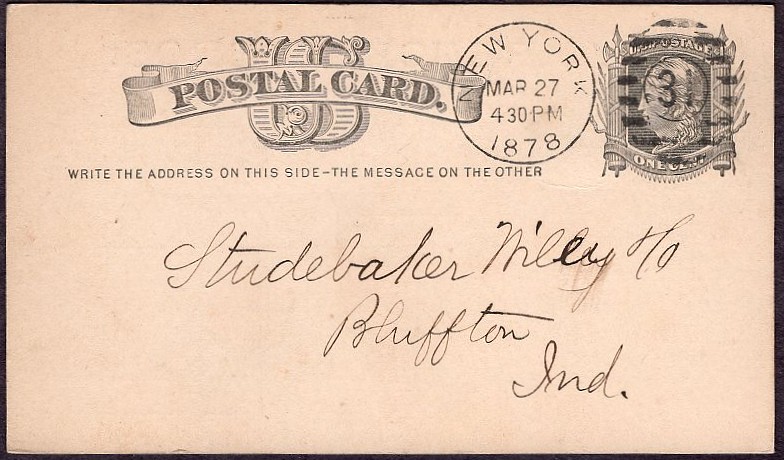 US
POSTAL CARD.
NEW YORK
MAR 27
430PM
1878
U.S. POSTAGE
31
ONE CENT
WRITE THE ADDRESS ON THIS SIDE–THE MESSAGE ON THE OTHER
Studebaker Wiley & Co
Bluffton
Ind.